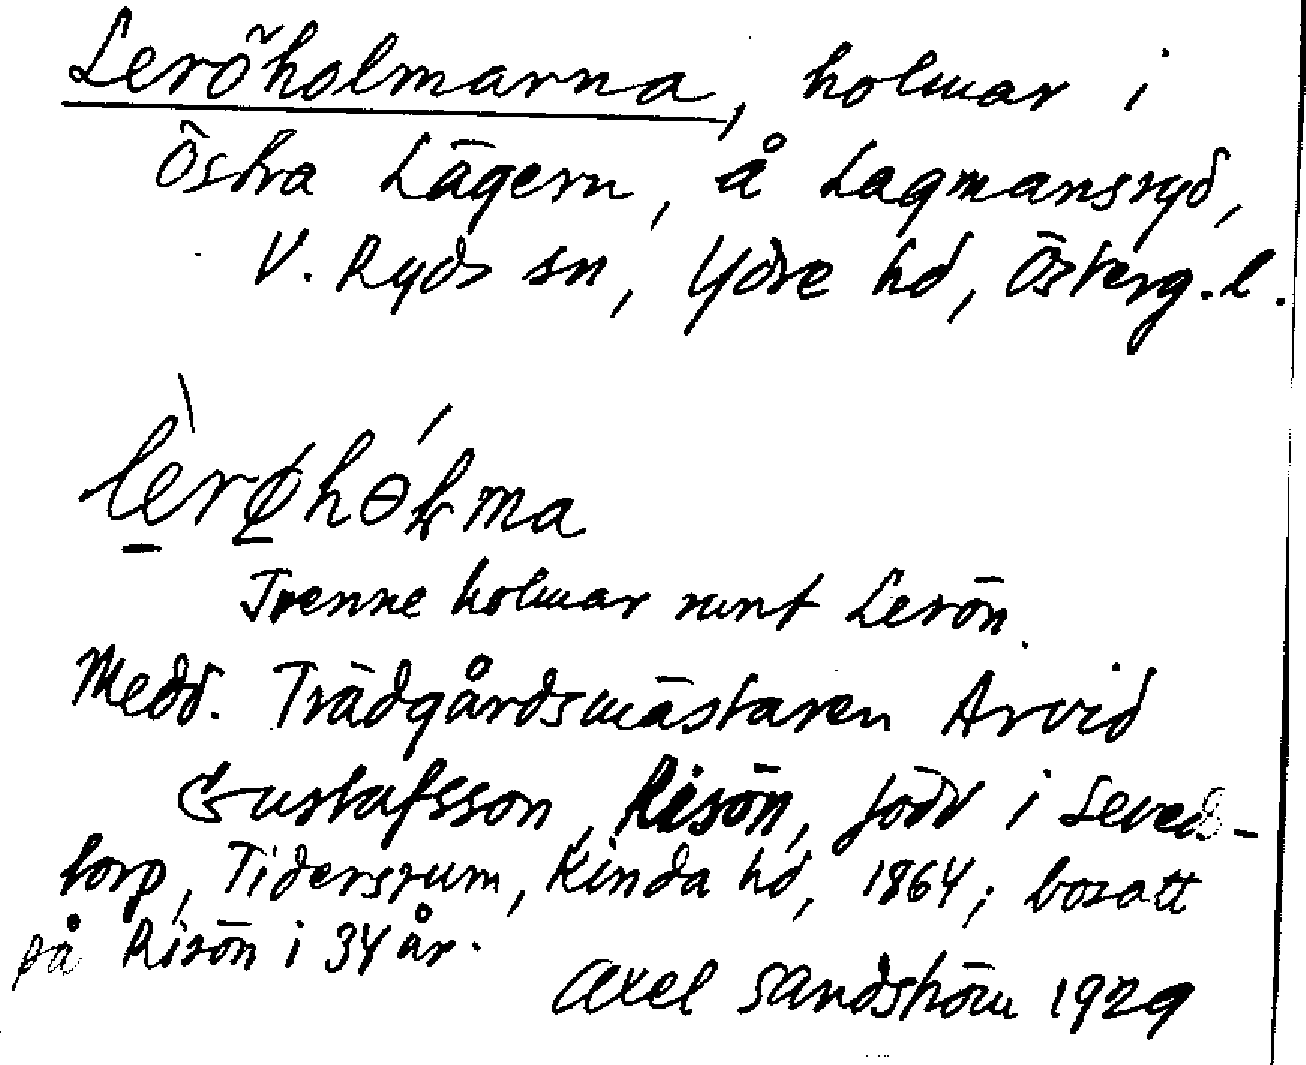 Leröholmarna, holmar i
Östra Lägern, å Lagmansryd,
V. Ryds sn, Ydre hd, Österg.l.
Trenne holmar runt Lerön.
Medd. Trädgårdsmästaren Arvid
Gustafsson, Risön, född i Seveds-
torp, Tidersrum, Kinda hd, 1864; bosatt
på Risön i 34 år.
Axel Sandström 1929